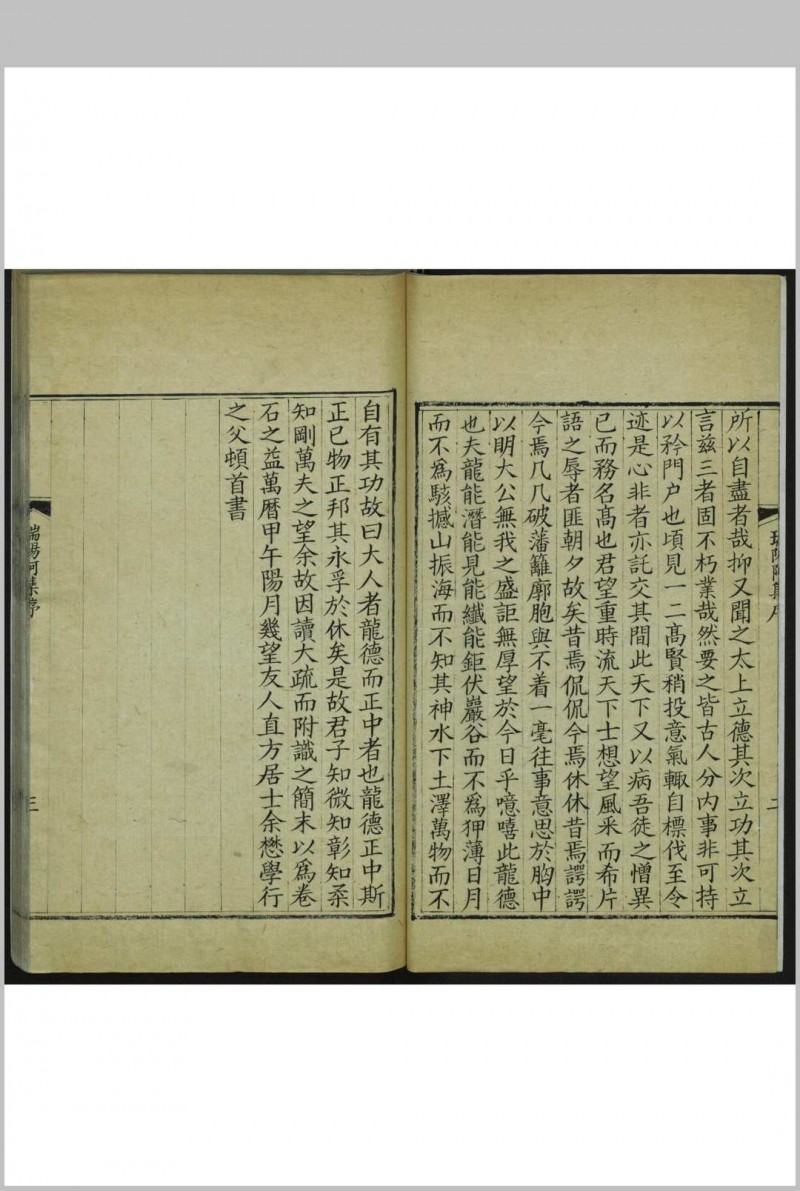 所以自盡者哉抑又聞之太上立德其次立功其次立
言兹三者固不朽業哉然要之皆古人分内事非可持
以矜門户也頃見一二髙賢稍投意氣輙自標伐至令
迹是心非者亦託交其間此天下又以病吾徒之憎異
已而務名髙也君望重時流天下士想望風采而希片
語之辱者匪朝夕故矣昔焉侃侃今焉休休昔焉諤諤
今焉几几破藩籬廓胞與不着一毫往事意思於胸中
以明大公無我之盛詎無厚望於今日乎噫嘻此龍德
也夫龍能潛能見能纖能鉅伏巖谷而不爲狎薄日月
而不爲駭撼山振海而不知其神水下土澤萬物而不
二
自有其功故曰大人者龍德而正中者也龍德正中斯
正已物正邦其永孚於休矣是故君子知微知彰知柔
知剛萬夫之望余故因讀大疏而附識之簡末以爲卷
石之益萬曆甲午陽月幾望友人直方居士余懋學行
之父頓首書
瑞陽阿集序
三